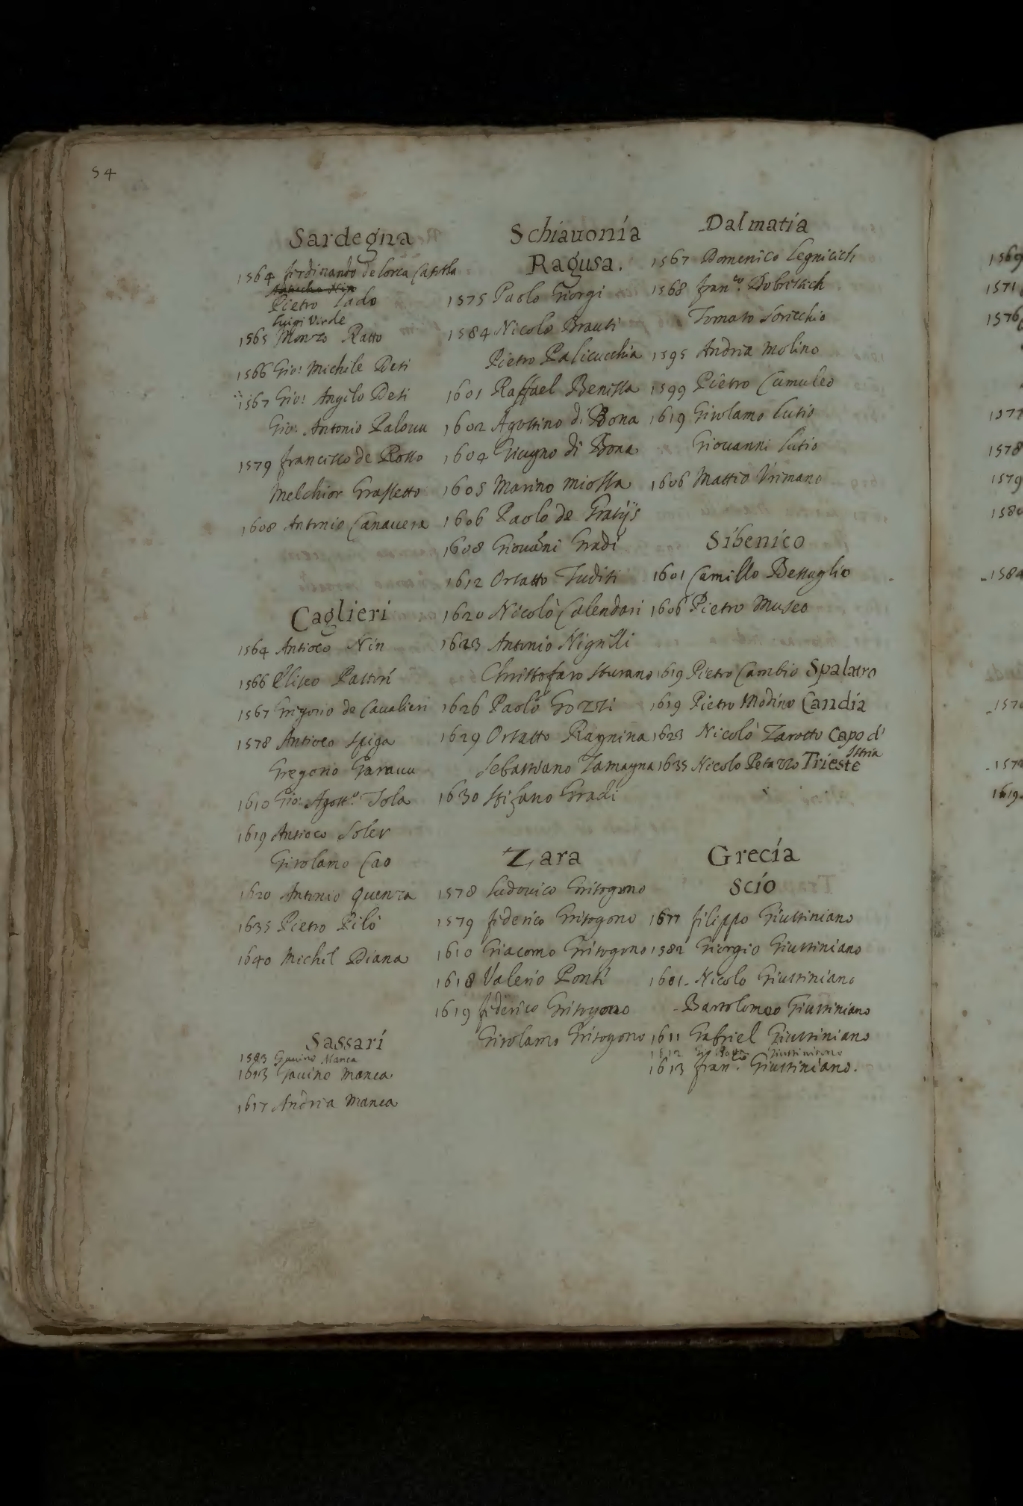 54
Sardegna
1564 Ferdinando de
Pietro Sado
Luigi Virde
1565 Monzo Ratto
1566 Gio: Michele Deti
1567 Gio: Angelo Deti
Gio: Antonio
1579 Francesco de Rosso
Melchior Grassetto
1608 Antonio Canavera
Caglieri
1564 Antioco Nin
1566 Eliseo Pastori
1567 Gregorio de Cavalieri
1578 Antioco Spiga
Gregorio Garauu
1610 Gio: Agost.o Tola
1619 Antioco Soler
Girolamo Cao
1620 Antonio Quenza
1635 Pietro Pilo
1640 Michel Diana
Sassari
1583 Gavino Manca
1613 Gavino Manca.
1617 Andria Manca
Schiauonia
Ragusa.
1575 Paolo Giorgi
1584 Nicolo Brauti
Pietro Palicucchia
1601 Raffael Benissa
1602 Agostino di Bona
1604 Giugno di Bona
1605 Marino
1606 Paolo de Gratijs
1608 Giovanni Gradi
1612 Orsatto Giuditi
1620 Nicolò Calendari
1623 Antonio
Christofaro
1626 Paolo Gozzi
1629 Orsatto Ragnina
Sebastiano Zamagna
1630 Stefano Gradi
Zara
1578 Ludovico Grisogono
1579 Federico Grisogono
1610 Giacomo Grisogono
1618 Valerio Ponti
1619 Federico Grisogono
Girolamo Grisogono
Dalmatia
1567 Domenico
1568 Fran.co
Tomaso
1595 Andria Molino
1599 Pietro Cumuleo
1619 Girolamo Lutio
Giovanni Lutio
1606 Mattio
Sibenico
1601 Camillo
1606 Pietro Museo
1619 Pietro Cambio Spalatro
1619 Pietro Modino Candia
1623 Nicolò Zarotto Capo d'
Istria
1635 Nicolo Petazzo Trieste
Grecia
Scio
1577 Filippo Giustiniano
1582 Giorgio Giustiniano
1601. Nicolo Giustiniano
Bartolomeo Giustiniano
1611 Gabriel Giustiniano
1612 Giustiniano
1613 Fran.co Giustiniano.
1569
1571
1576
1577
1578
1579
1580
1584
1570
1574
1619